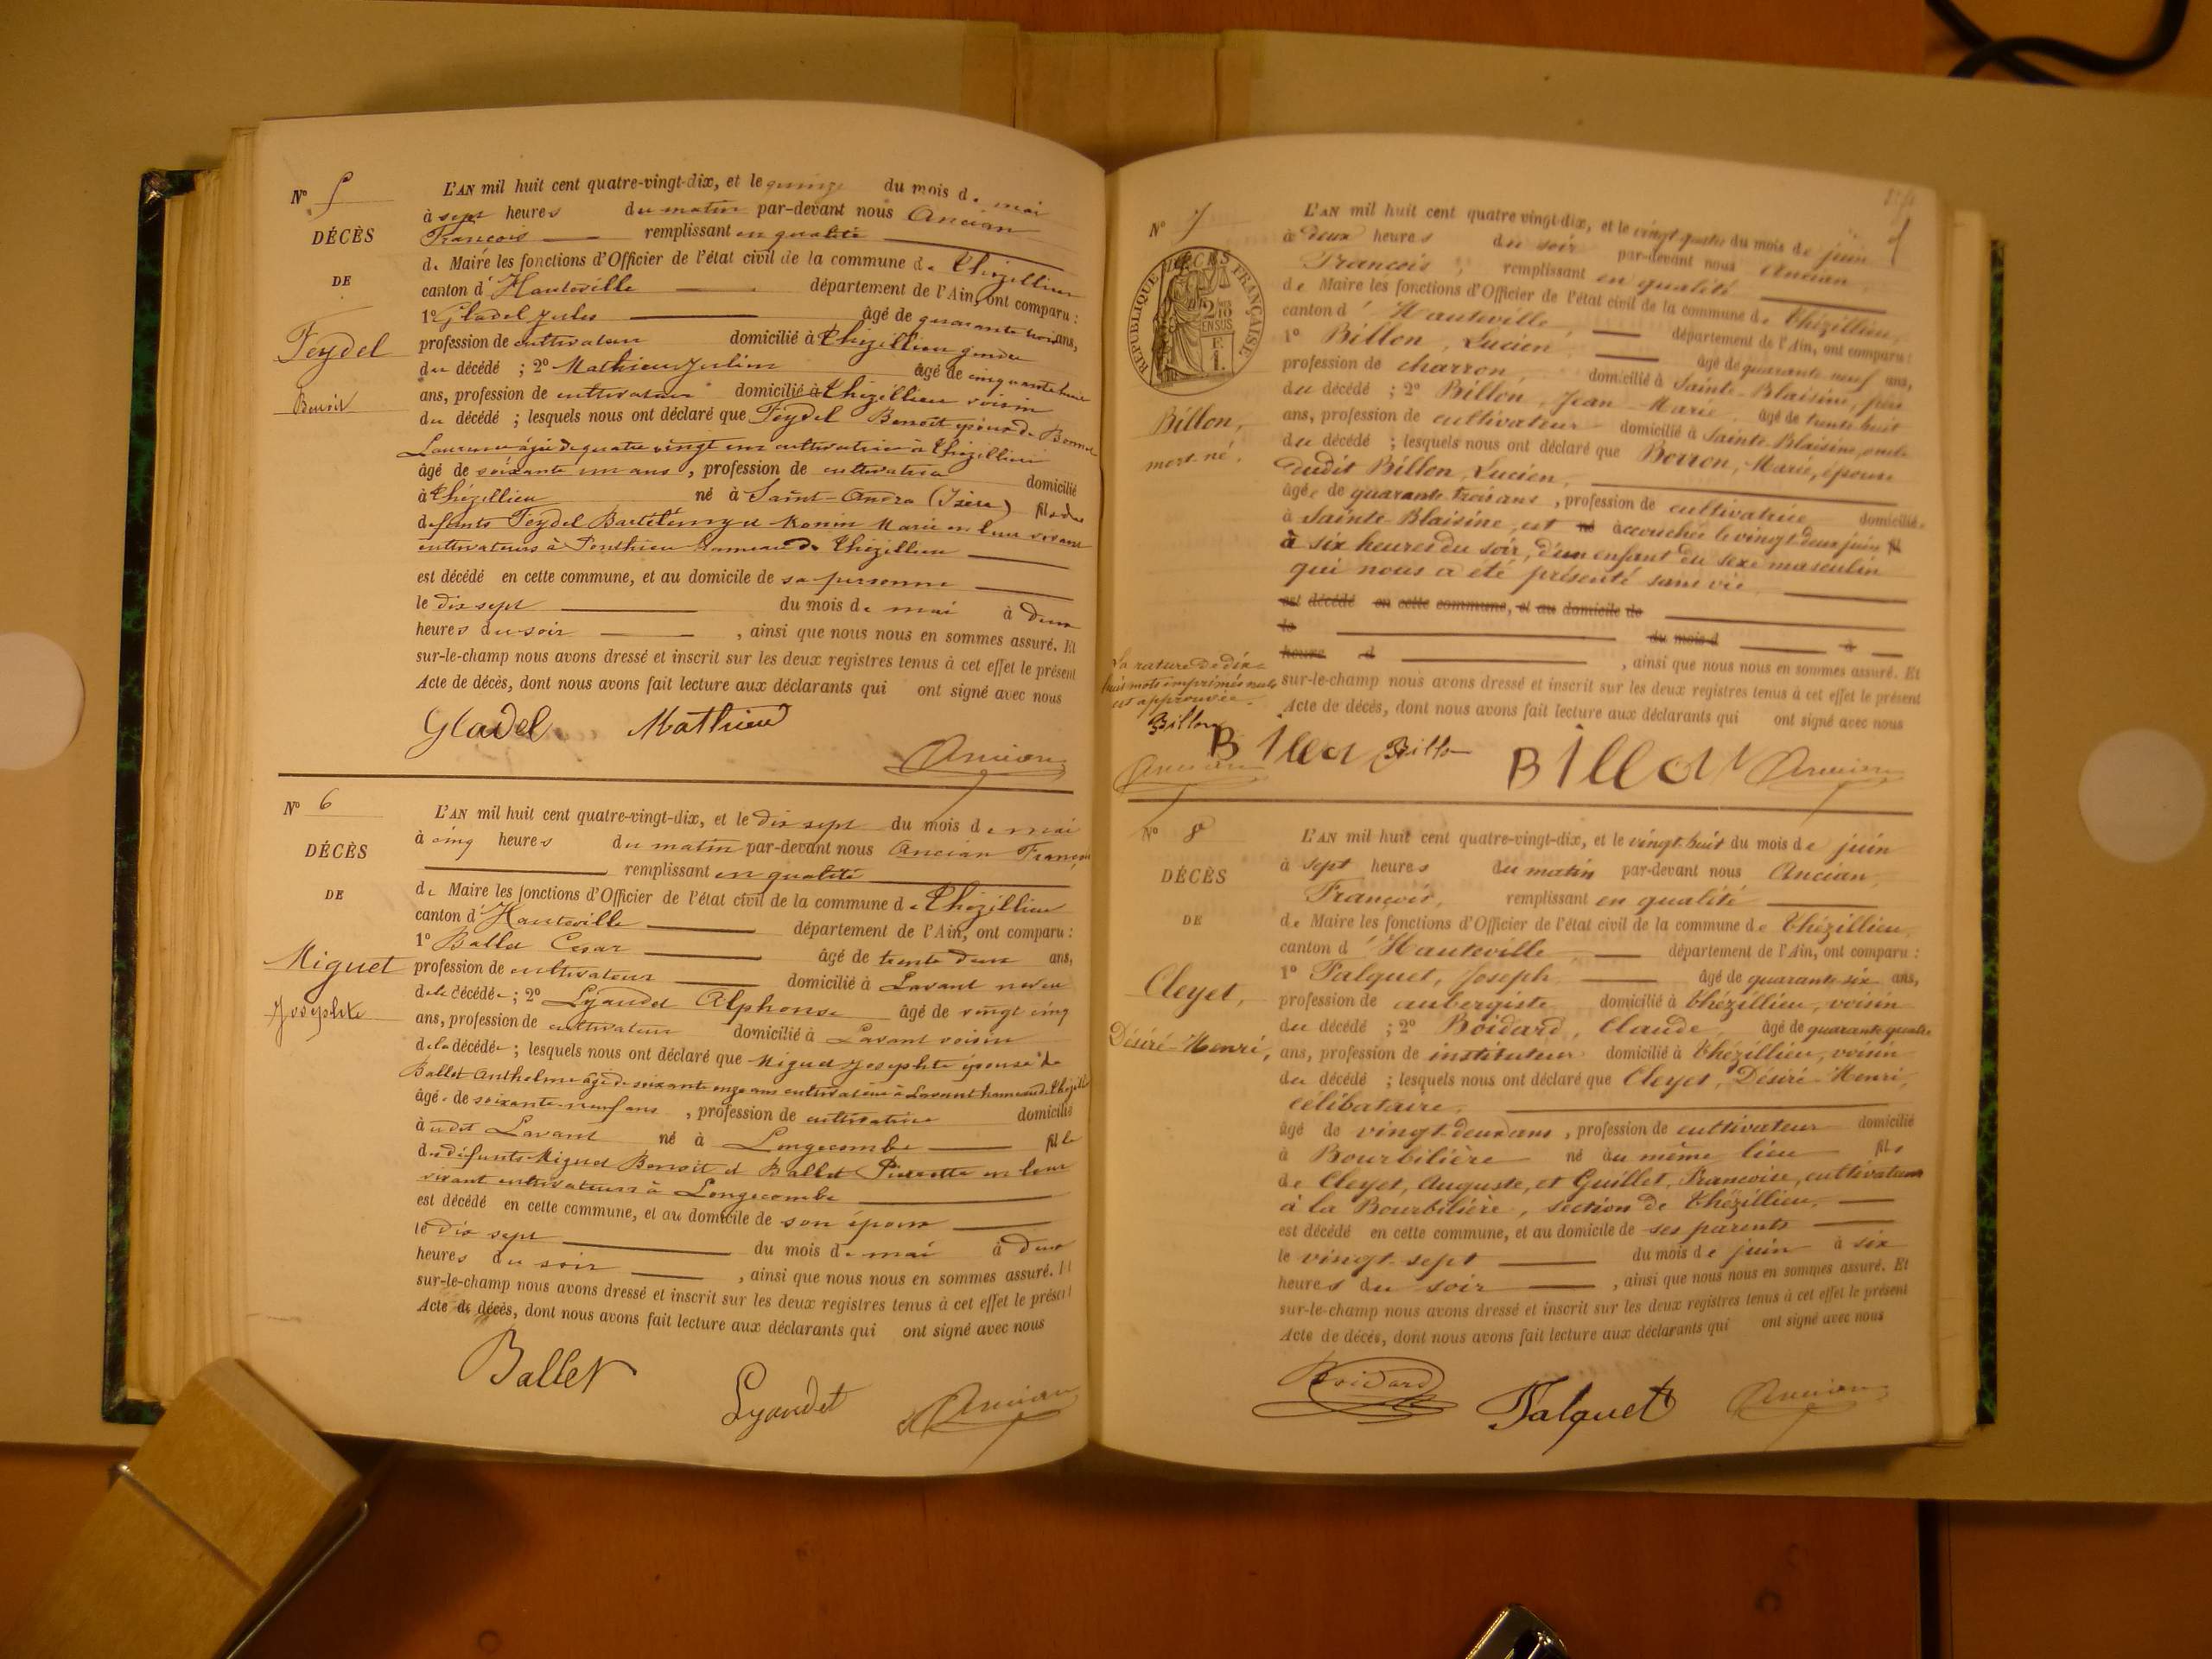 N° 5
DÉCÈS
DE
Feydel
Benoit
L'AN mil huit cent quatre-vingt-dix, et le quinze du mois de mai
à sept heures du matin par-devant nous Ancian
François remplissant en qualité
de Maire les fonctions d'Officier de l'état civil de la commune de Thézillieu
canton d'Hauteville département de l'Ain, ont comparu :
1° Gladel Jules âgé de quarante trois ans,
profession de cultivateur domicilié à Thézillieu gendre
du décédé ; 2° Mathieu Julien âgé de cinquante huit
ans, profession de cultivateur domicilié à Thézillieu voisin
du décédé ; lesquels nous ont déclaré que Feydel Benoit époux de Bonnet
âgée de quatre vingt un cultivatrice à Thézillieu
âgé de soixante un ans, profession de cultivateur domicilié
à Thézillieu né à Saint-André (Isère) fils de
défunts Feydel Bartélémy et Marie en leur vivant
cultivateurs à Ponthieu hameau de Thézillieu
est décédé en cette commune, et au domicile de sa personne
le dix sept du mois de mai à deux
heures du soir, ainsi que nous nous en sommes assuré. Et
sur-le-champ nous avons dressé et inscrit sur les deux registres tenus à cet effet le présent
Acte de décès, dont nous avons fait lecture aux déclarants qui ont signé avec nous
Gladel Mathieu
Ancian
N° 6
DÉCÈS
DE
Miguet
Josephte
L'AN mil huit cent quatre-vingt-dix, et le dix sept du mois de mai
à cinq heures du matin par-devant nous Ancian François
remplissant en qualité
de Maire les fonctions d'Officier de l'état civil de la commune de Thézillieu
canton d'Hauteville département de l'Ain, ont comparu :
1° Ballet César âgé de trente deux ans,
profession de cultivateur domicilié à Lavant neveu
de la décédée ; 2° Lyaudet Alphonse âgé de vingt cinq
ans, profession de cultivateur domicilié à Lavant voisin
de la décédée ; lesquels nous ont déclaré que Miguet Josephte épouse de
Ballet Anthelme âgé de soixante onze ans cultivateur à Lavant hameau de Thézillieu
âgée de soixante-neuf ans, profession de cultivatrice domicilié
à udit Lavant né à Longecombe fille
de défunts Miguet Benoit et Ballet Pierrette en leur
vivant cultivateurs à Longecombe
est décédé en cette commune, et au domicile de son époux
le dix sept du mois de mai à deux
heures du soir, ainsi que nous nous en sommes assuré. Et
sur-le-champ nous avons dressé et inscrit sur les deux registres tenus à cet effet le présent
Acte de décès, dont nous avons fait lecture aux déclarants qui ont signé avec nous
Ballet
Lyaudet Ancian
N° 7
RÉPUBLIQUE FRANÇAISE
2/10 EN SUS
F.
1.
Billon,
mort-né.
L'AN mil huit cent quatre vingt-dix, et le vingt-quatre du mois de juin
à deux heures du soir par-devant nous Ancian
François, remplissant en qualité
de Maire les fonctions d'Officier de l'état civil de la commune de Thézillieu,
canton d'Hauteville, département de l'Ain, ont comparu :
1° Billon, Lucien âgé de quarante neuf ans,
profession de charron, domicilié à Sainte-Blaisine, père
du décédé ; 2° Billon, Jean-Marie, âgé de trente-huit
ans, profession de cultivateur domicilié à Sainte-Blaisine, oncle
du décédé ; lesquels nous ont déclaré que Borron, Marie, épouse
dudit Billon, Lucien,
âgée de quarante-trois ans, profession de cultivatrice domiciliée
à Sainte-Blaisine, est né accouchée le vingt-deux juin fil
à six heures du soir, d'un enfant du sexe masculin
qui nous a été présenté sans vie.
est décédé en cette commune, et au domicile de
le du mois d à
heure d, ainsi que nous nous en sommes assuré. Et
sur-le-champ nous avons dressé et inscrit sur les deux registres tenus à cet effet le présent
Acte de décès, dont nous avons fait lecture aux déclarants qui ont signé avec nous
La rature de dix-
huit mots imprimés nuls
est approuvée.
Billon
Ancian
Billon Billon Ancian
N° 8
DÉCÈS
DE
Cleyet,
Désiré-Henri,
L'AN mil huit cent quatre-vingt-dix, et le vingt-huit du mois de juin
à sept heures du matin par-devant nous Ancian,
François, remplissant en qualité
de Maire les fonctions d'Officier de l'état civil de la commune de Thézillieu,
canton d'Hauteville département de l'Ain, ont comparu :
1° Falquet, Joseph âgé de quarante-six ans,
profession de aubergiste domicilié à Thézillieu, voisin
du décédé ; 2° Boidard, Claude, âgé de quarante-quatre
ans, profession de instituteur domicilié à Thézillieu, voisin
du décédé ; lesquels nous ont déclaré que Cleyet, Désiré-Henri,
célibataire,
âgé de vingt-deux ans, profession de cultivateur domicilié
à Bourbilière né au même lieu fils
de Cleyet, Auguste, et Guillet, Françoise, cultivateurs
à la Bourbilière, section de Thézillieu,
est décédé en cette commune, et au domicile de ses parents
le vingt-sept du mois de juin à six
heures du soir, ainsi que nous nous en sommes assuré. Et
sur-le-champ nous avons dressé et inscrit sur les deux registres tenus à cet effet le présent
Acte de décès, dont nous avons fait lecture aux déclarants qui ont signé avec nous
Boidard Falquet Ancian